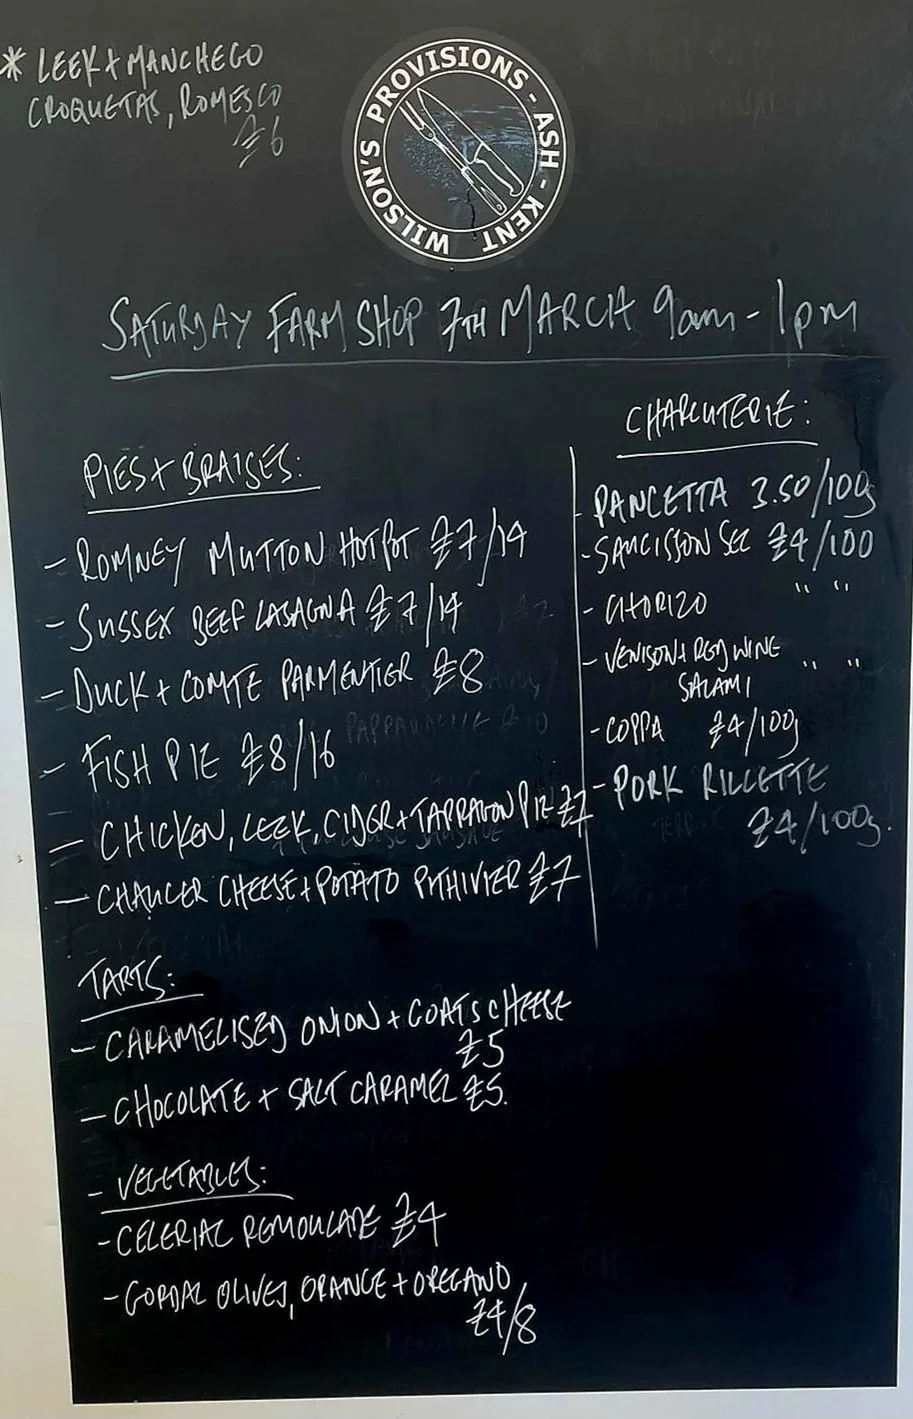 * LEEK + MANCHEGO
CROQUETAS, ROMESCO
£6
WILSON'S PROVISIONS - ASH - KENT
SATURDAY FARM SHOP 7TH MARCH 9am - 1pm
PIES + BRAISES:
- ROMNEY MUTTON HOTPOT £7/14
- SUSSEX BEEF LASAGNA £7/14
- DUCK + COMTE PARMENTIER £8
- FISH PIE £8/16
- CHICKEN, LEEK, CIDER + TARRAGON PIE £7
- CHAUCER CHEESE + POTATO PITHIVIER £7
CHARCUTERIE:
- PANCETTA 3.50/100g
- SAUCISSON SEC £4/100
- CHORIZO " "
- VENISON + RED WINE " "
SALAMI
- COPPA £4/100g
- PORK RILLETTE
£4/100g.
TARTS:
- CARAMELISED ONION + GOATS CHEESE
£5
- CHOCOLATE + SALT CARAMEL £5.
- VEGETABLES:
- CELERIAC REMOULADE £4
- GORDAL OLIVES, ORANGE + OREGANO
£4/8